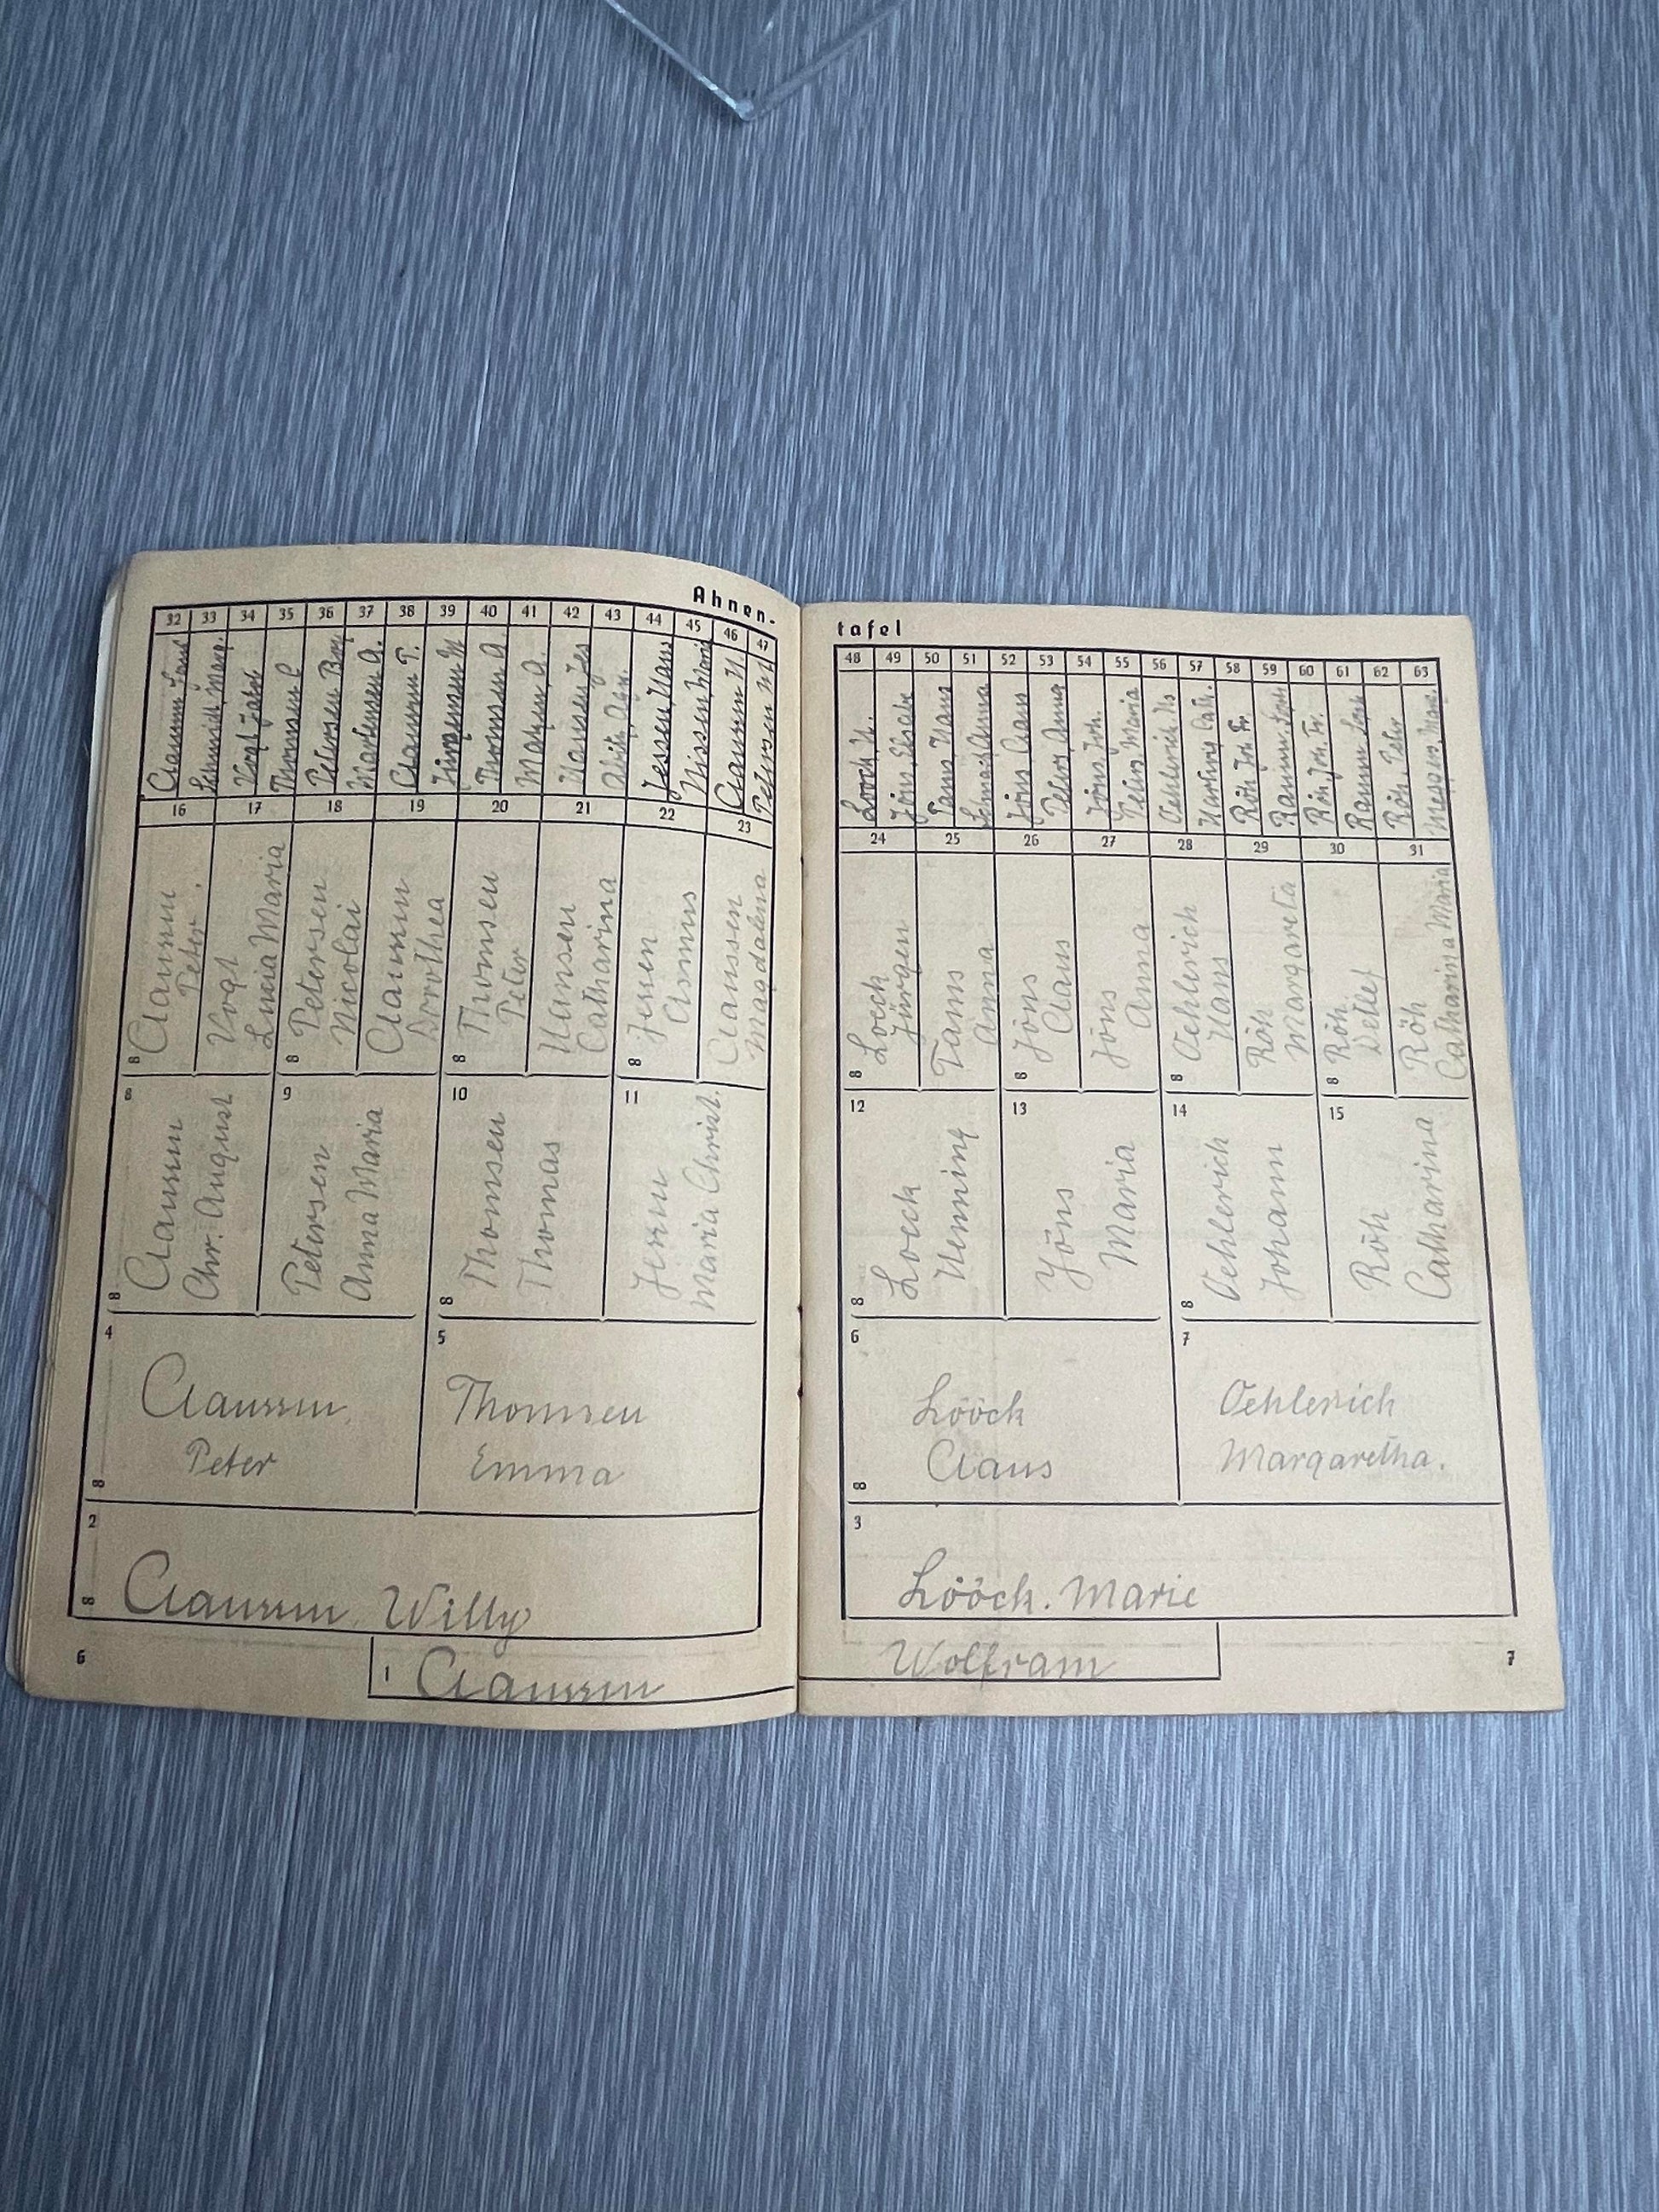 Ahnen-
32 33 34 35 36 37 38 39 40 41 42 43 44 45 46 47
Schmidt, Marg.
Vogt Jakob
Thomsen C
Petersen Boy
Martensen A.
Claussen P.
Thomsen A.
Hansen Jes
Jessen, Hans
Nissen, Marie
Claussen H.
Petersen M
16 17 18 19 20 21 22 23
8 Claussen
Peter.
Vogt
Lucia Maria
8 Petersen
Nicolai
Claussen
Dorothea
8 Thomsen
Peter
Hansen
Catharina
8 Jessen
Asmus
Claussen
Magdalena
8 9 10 11
8 Claussen
Chr. August
Petersen
Anna Maria
8 Thomsen
Thomas
Jessen
Maria Christ.
4 5
Claussen,
Peter
Thomsen
Emma
8
2
8 Claussen, Willy
6
1 Claussen
tafel
48 49 50 51 52 53 54 55 56 57 58 59 60 61 62 63
Loock H.
Jöns, Elsabe
Tams Hans
Jöns Claus
Peters, Anna
Jöns, Joh.
Peters Maria
Oehlerich Hs
Harbers Cath.
Röh Joh Fr.
Röh, Joh. Fr.
Röh, Peter
24 25 26 27 28 29 30 31
8 Loeck
Jürgen
Tams
Anna
8 Jöns
Claus
Jöns
Anna
8 Oehlerich
Hans
Röh
Margareta
8 Röh
Detlef
Röh
Catharina Maria
12 13 14 15
8 Loeck
Henning
Jöns
Maria
8 Oehlerich
Johann
Röh
Catharina
6 7
Lööck
Claus
Oehlerich
Margaretha.
8
3
Lööck. Marie
Wolfram
7